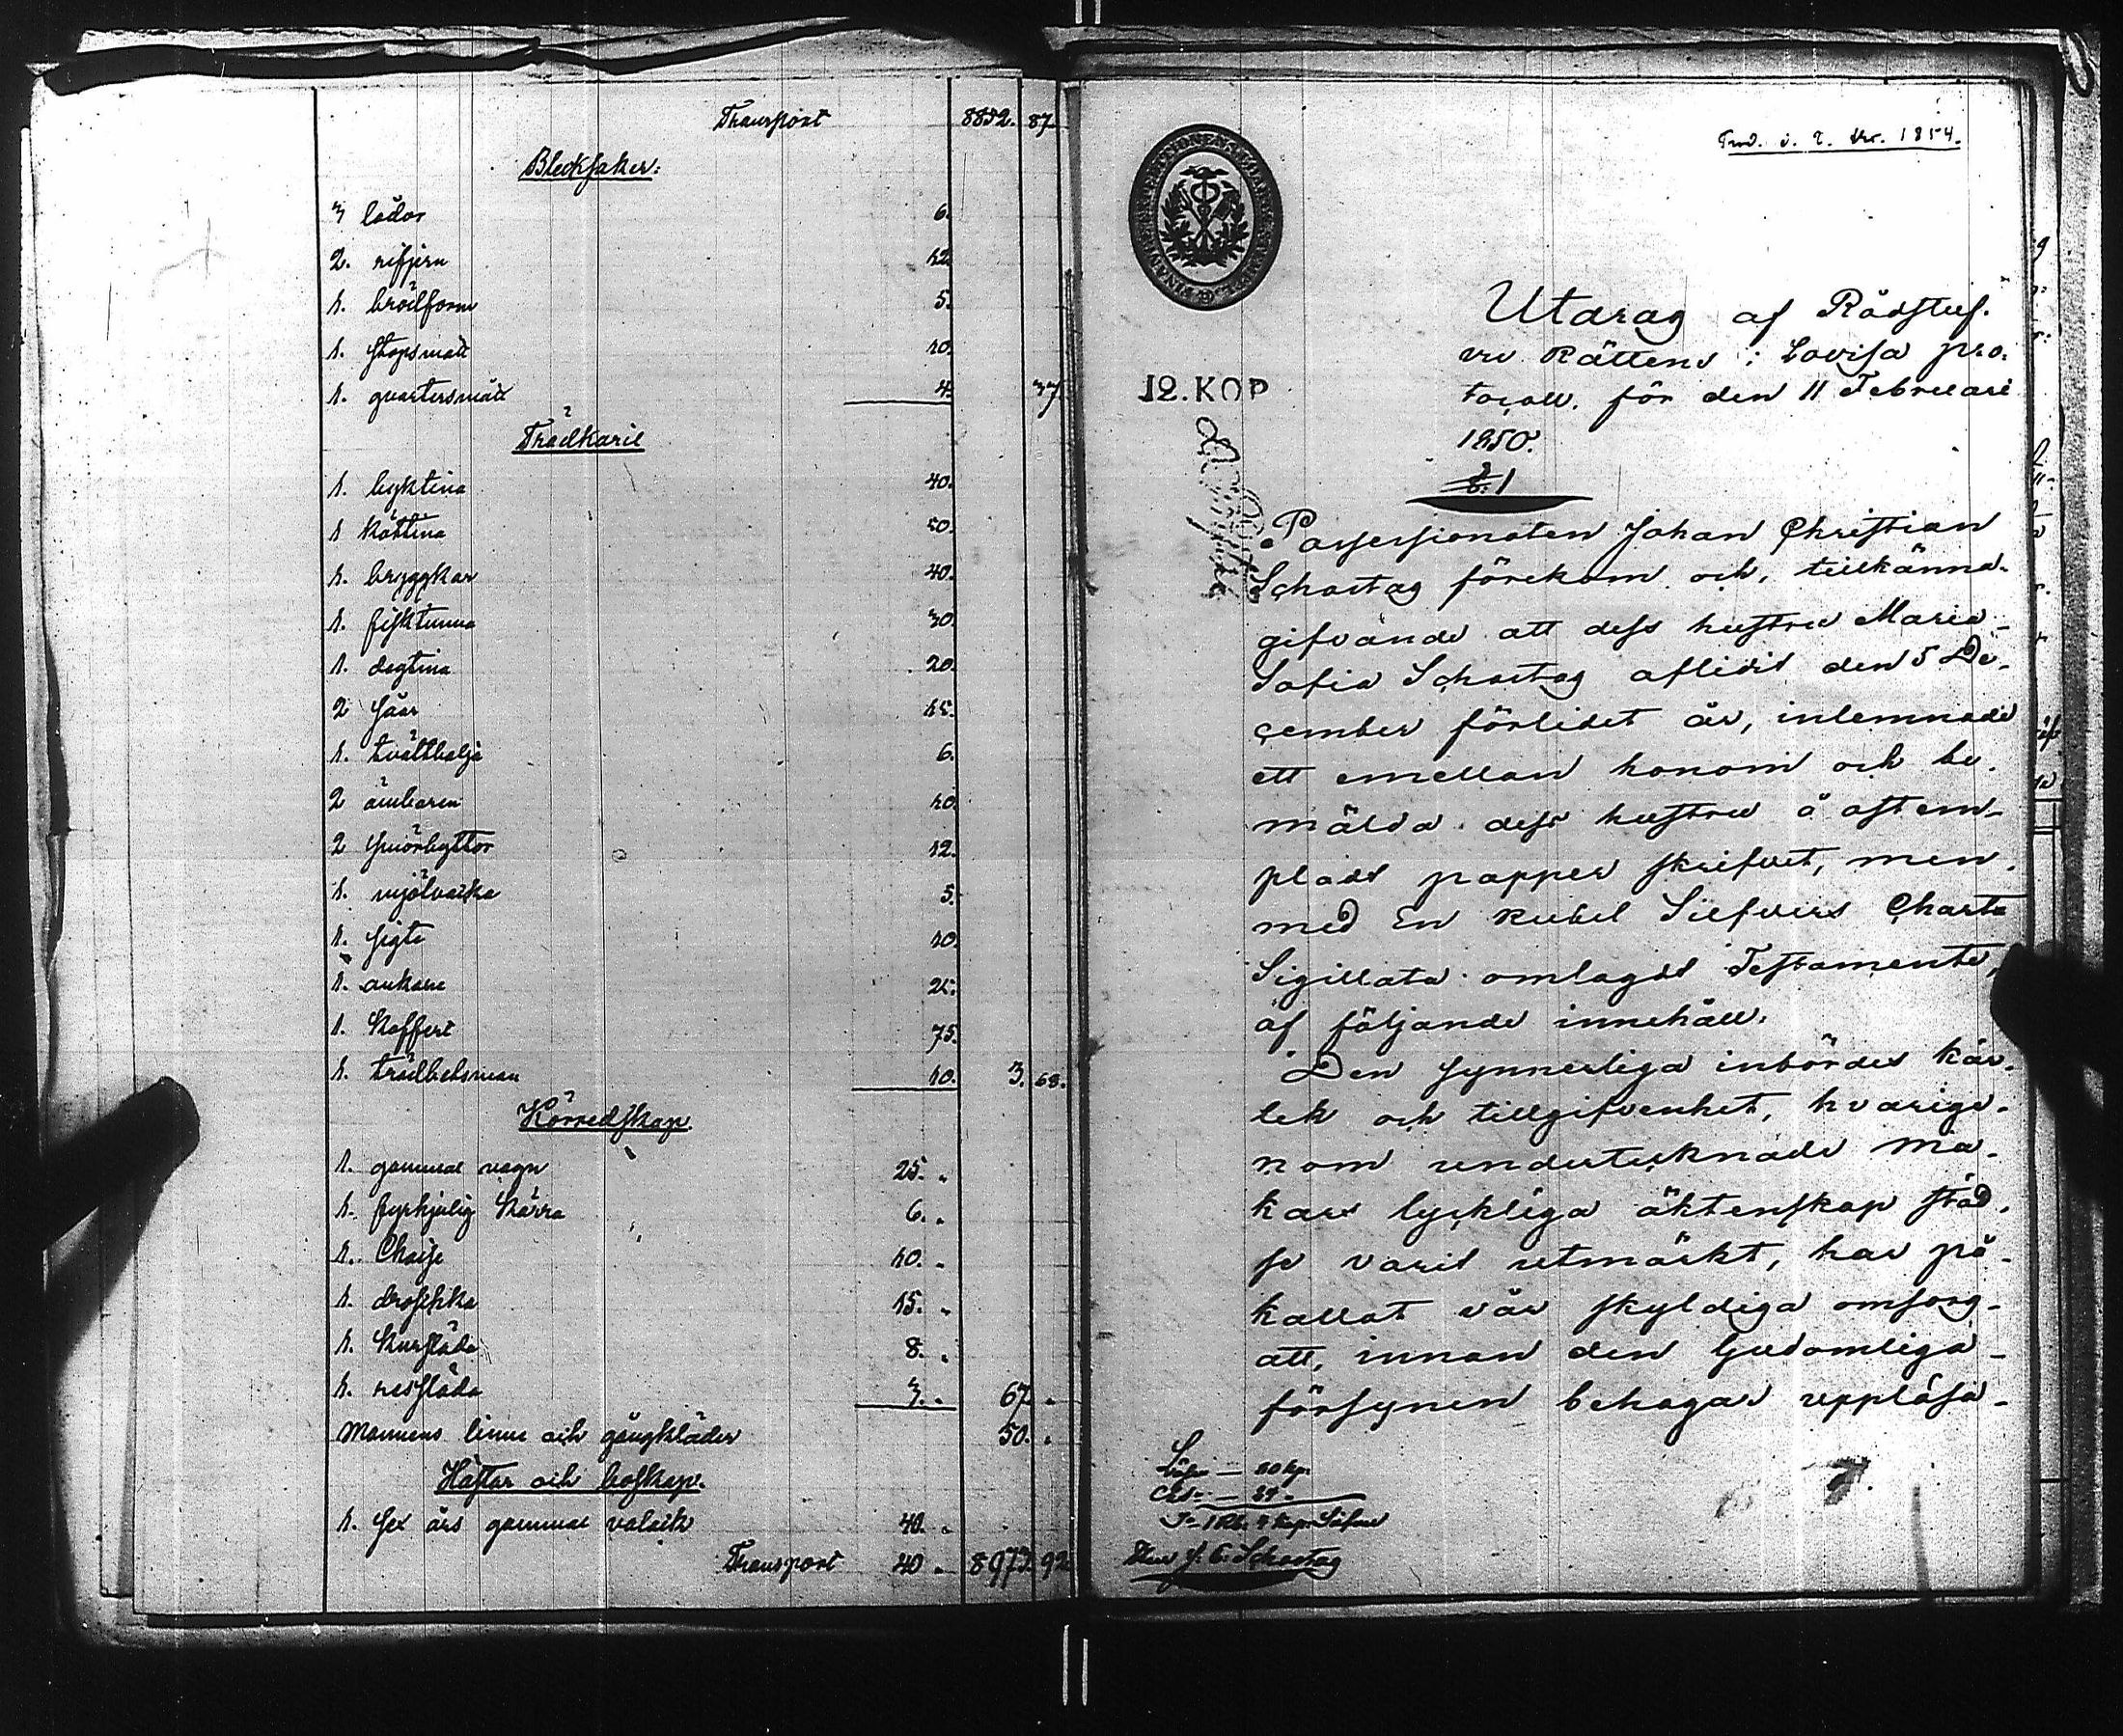 Transport 8852. 87.
Blecksaker:
3 lådor 6.
2. rifjern 12.
1. brödform 5.
1. stopsmått 10.
1. qvartersmått 4. 37.
Trädkäril
1. byktina 40.
1 köttina 50.
1. bryggkar 40.
1. fisktunna 30.
1. degtina 20.
2 såar 15.
1. tvättbalja 6.
2 ämbaren 10.
2 smörbyttor 12.
1. mjölvacka 5.
1. sigte 10.
1. ankare 25.
1. Koffert 75.
1. trädbesman 10. 3. 68.
Körredskap
1. gammal vagn 25. "
1. fyrhjulig Kärra 6. "
1. Chaise 10. "
1. droschka 15. "
1. Kursläde 8. "
1. ressläde 3. " 67. "
Mannens linne och gångkläder 50. "
Hästar och boskap.
1. sex års gammal valack 40. "
Transport 40 " 8973. 92
1854.
12. KOP
Utdrag af Rådstuf-
vu Rättens i Lovisa pro-
tocoll för den 11 Februari
1850.
§. 1
Possessionaten Johan Christian
Schartag förekom och, tillkänna-
gifvande att dess hustru Maria
Sofia Schartag aflidit den 5 De-
cember förlidet år, inlemnade
ett emellan honom och be-
mälda dess hustru å ostem-
pladt papper skrifvet, men
med En Rubel Silfvers Charta
Sigillata omlagdt Testamente,
af följande innehåll.
Den synnerliga inbördes kär-
lek och tillgifvenhet, hvarige-
nom undertecknade ma-
kars lyckliga äktenskap städ-
se varit utmärkt, har på-
kallat vår skyldiga omsorg
att, innan den Gudomliga
försynen behagar upplösa
Lösen — 80 kp.
J. C. Schartag